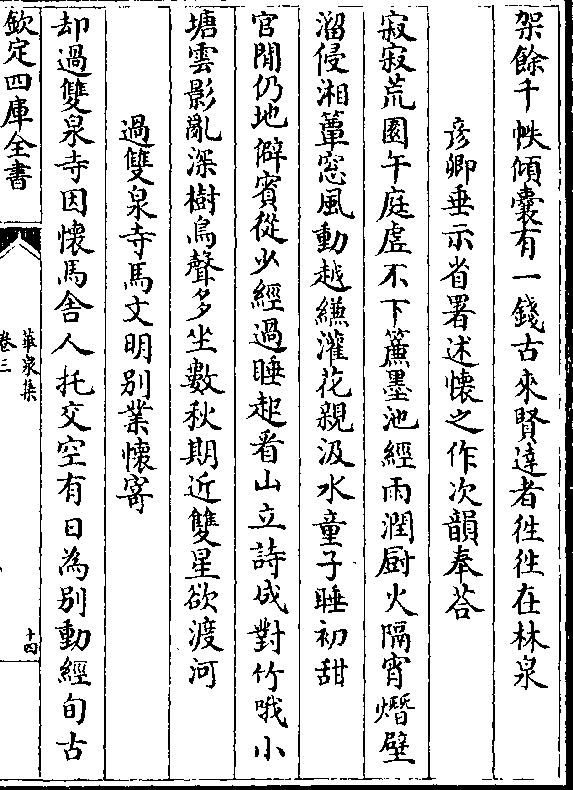 架餘千帙傾囊有一錢古來賢達者徃徃在林泉
彥卿垂示省署述懷之作次韻奉荅
寂寂荒園午庭虛不下簾墨池經雨潤厨火隔宵熸壁
溜侵湘蕈窓風動越縑灌花親汲水童子睡初甜
官閒仍地僻賓從少經過睡起看山立詩成對竹哦小
塘雲影亂深樹鳥聲多坐數秋期近雙星欲渡河
過雙泉寺馬文明别業懷寄
却過雙泉寺因懷馬舍人托交空有日為别動經旬古
欽定四庫全書
華泉集
卷三
十四